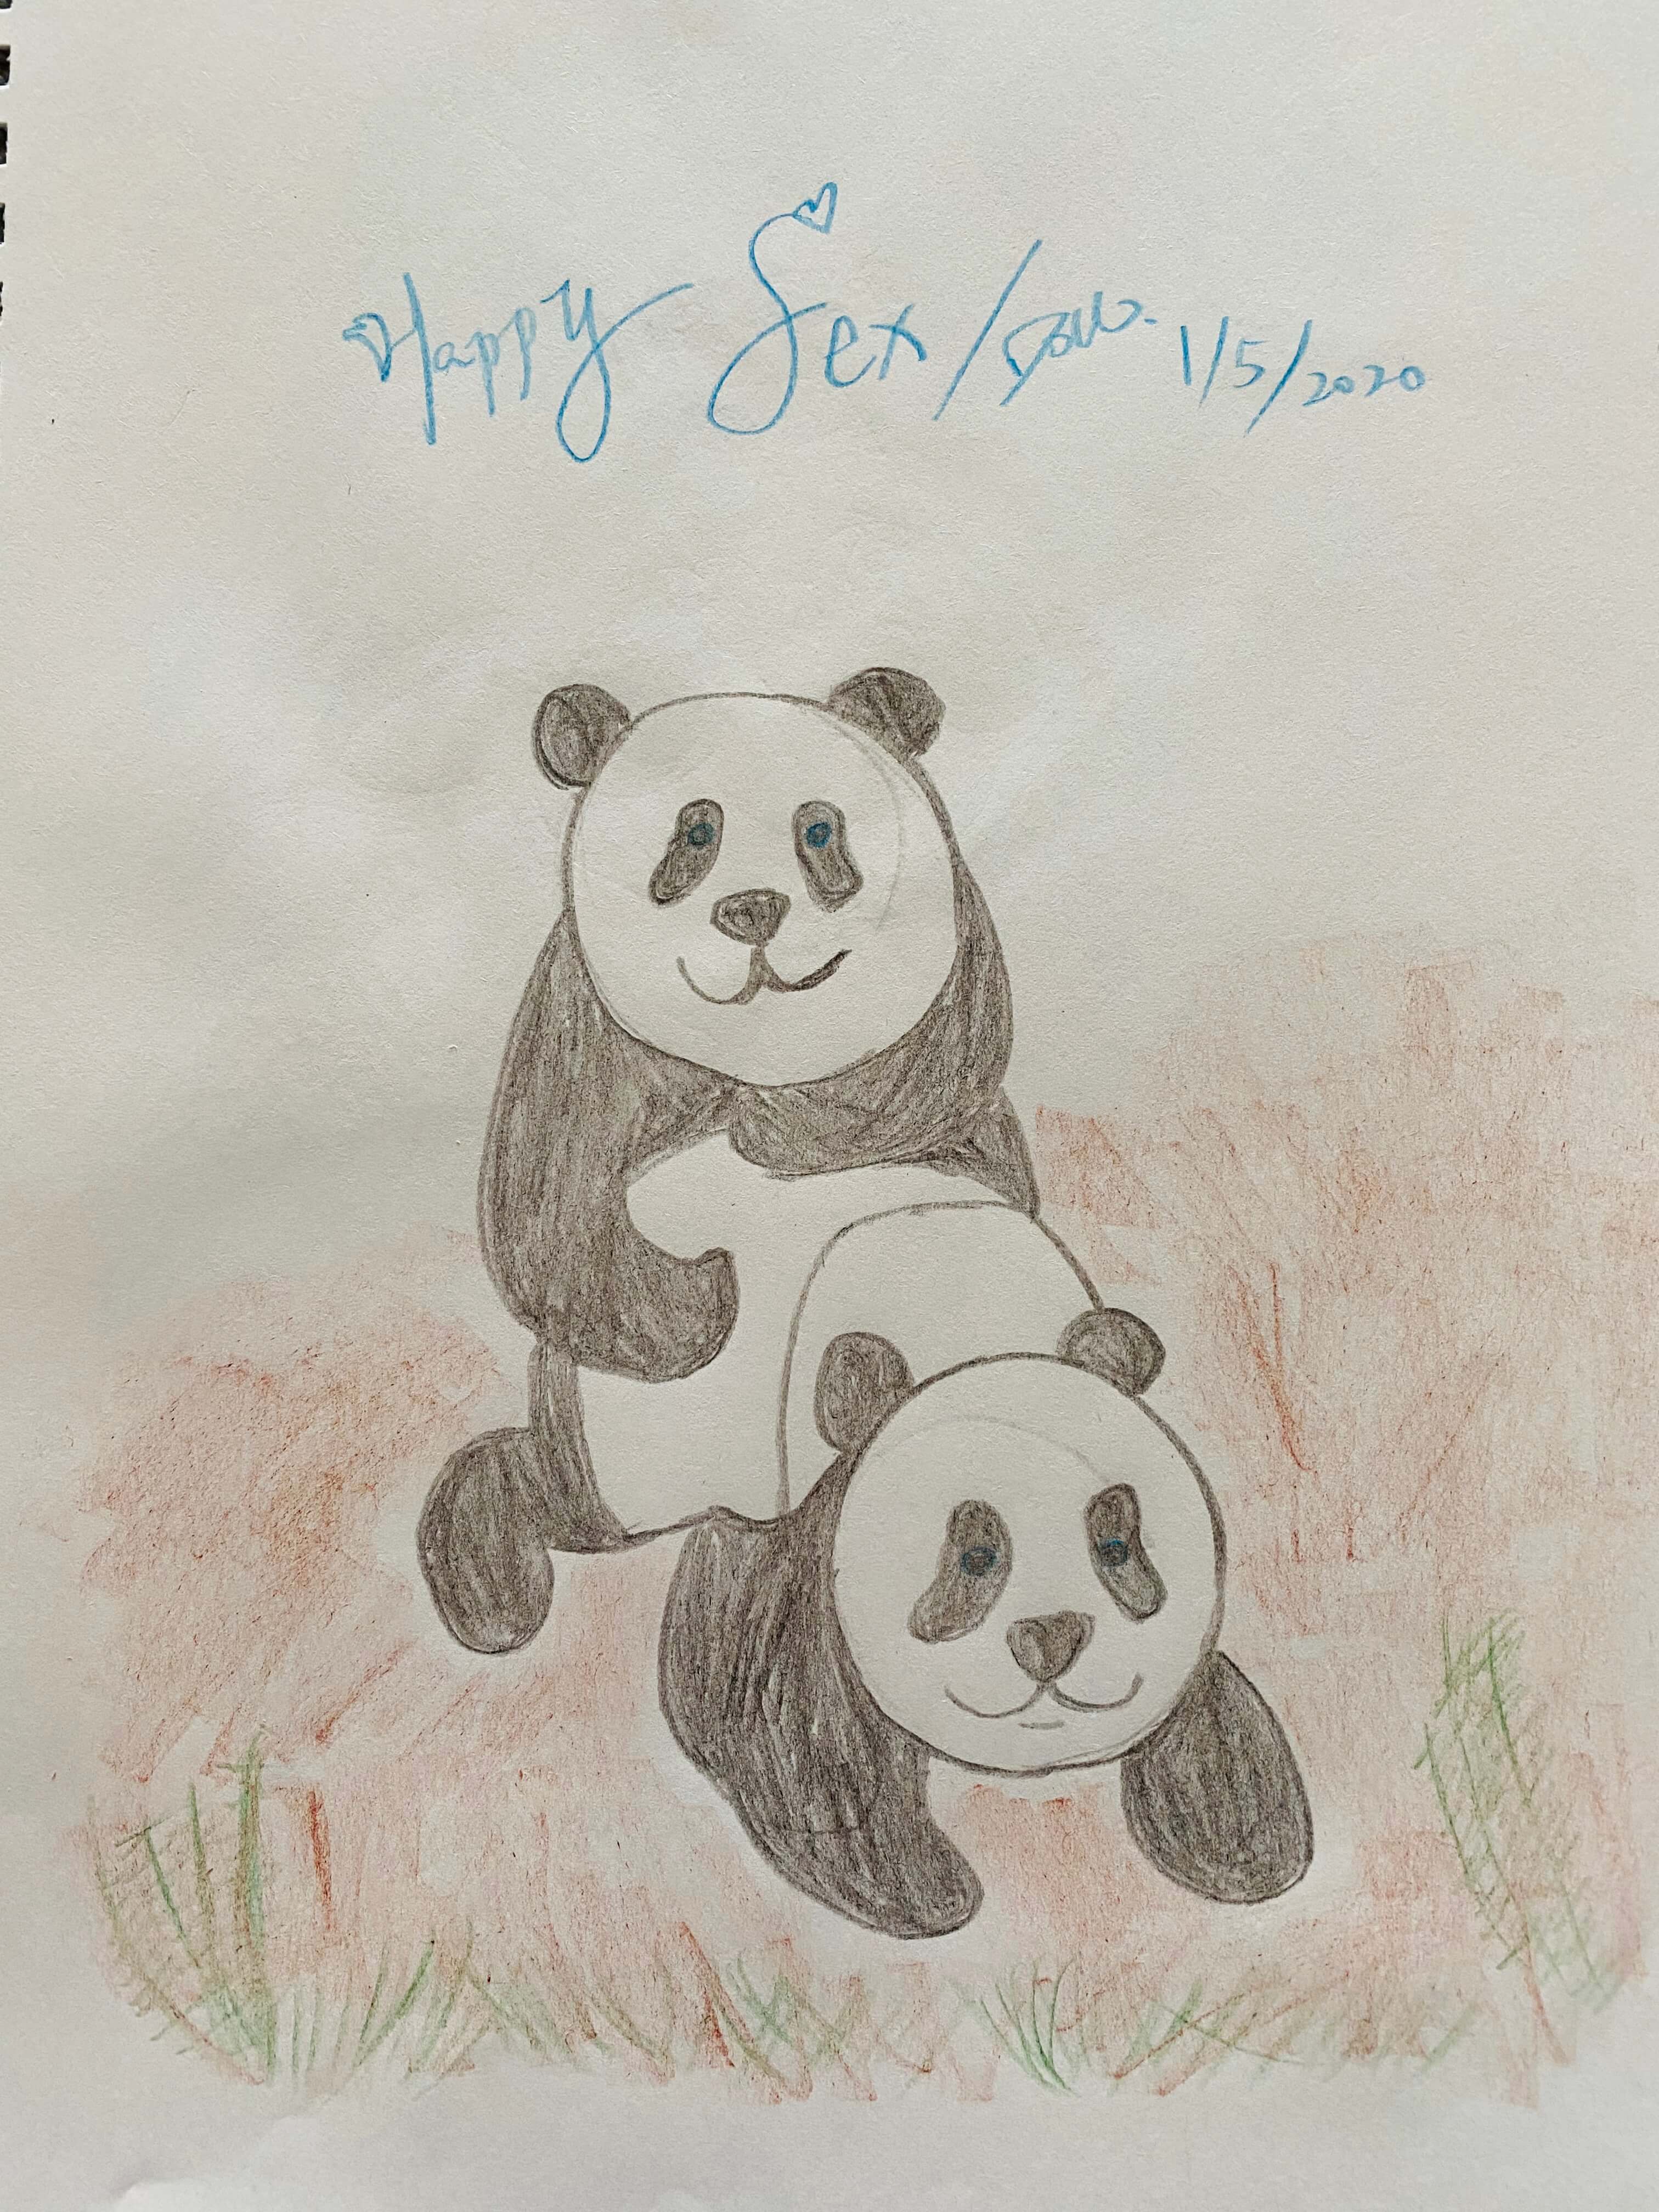 Happy Sex / 1/5/2020